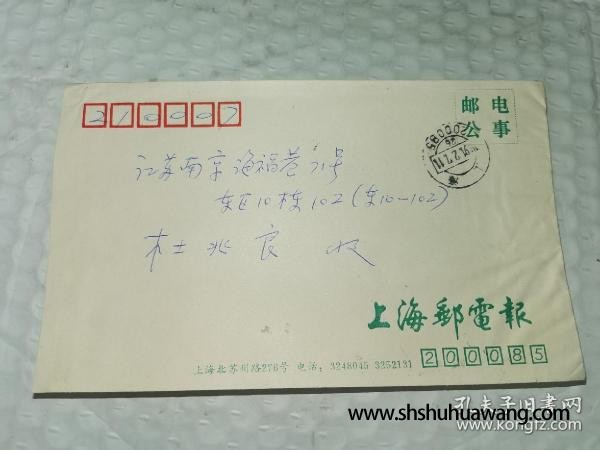 邮电
公事
210007
200085
江苏南京海福巷71号
东区10栋102(东10-102)
杜兆良 收
上海郵電報
上海北苏州路276号 电话:3248045 3252131
200085
www.shshuhuawang.com
孔夫子旧书网
www.kongfz.com